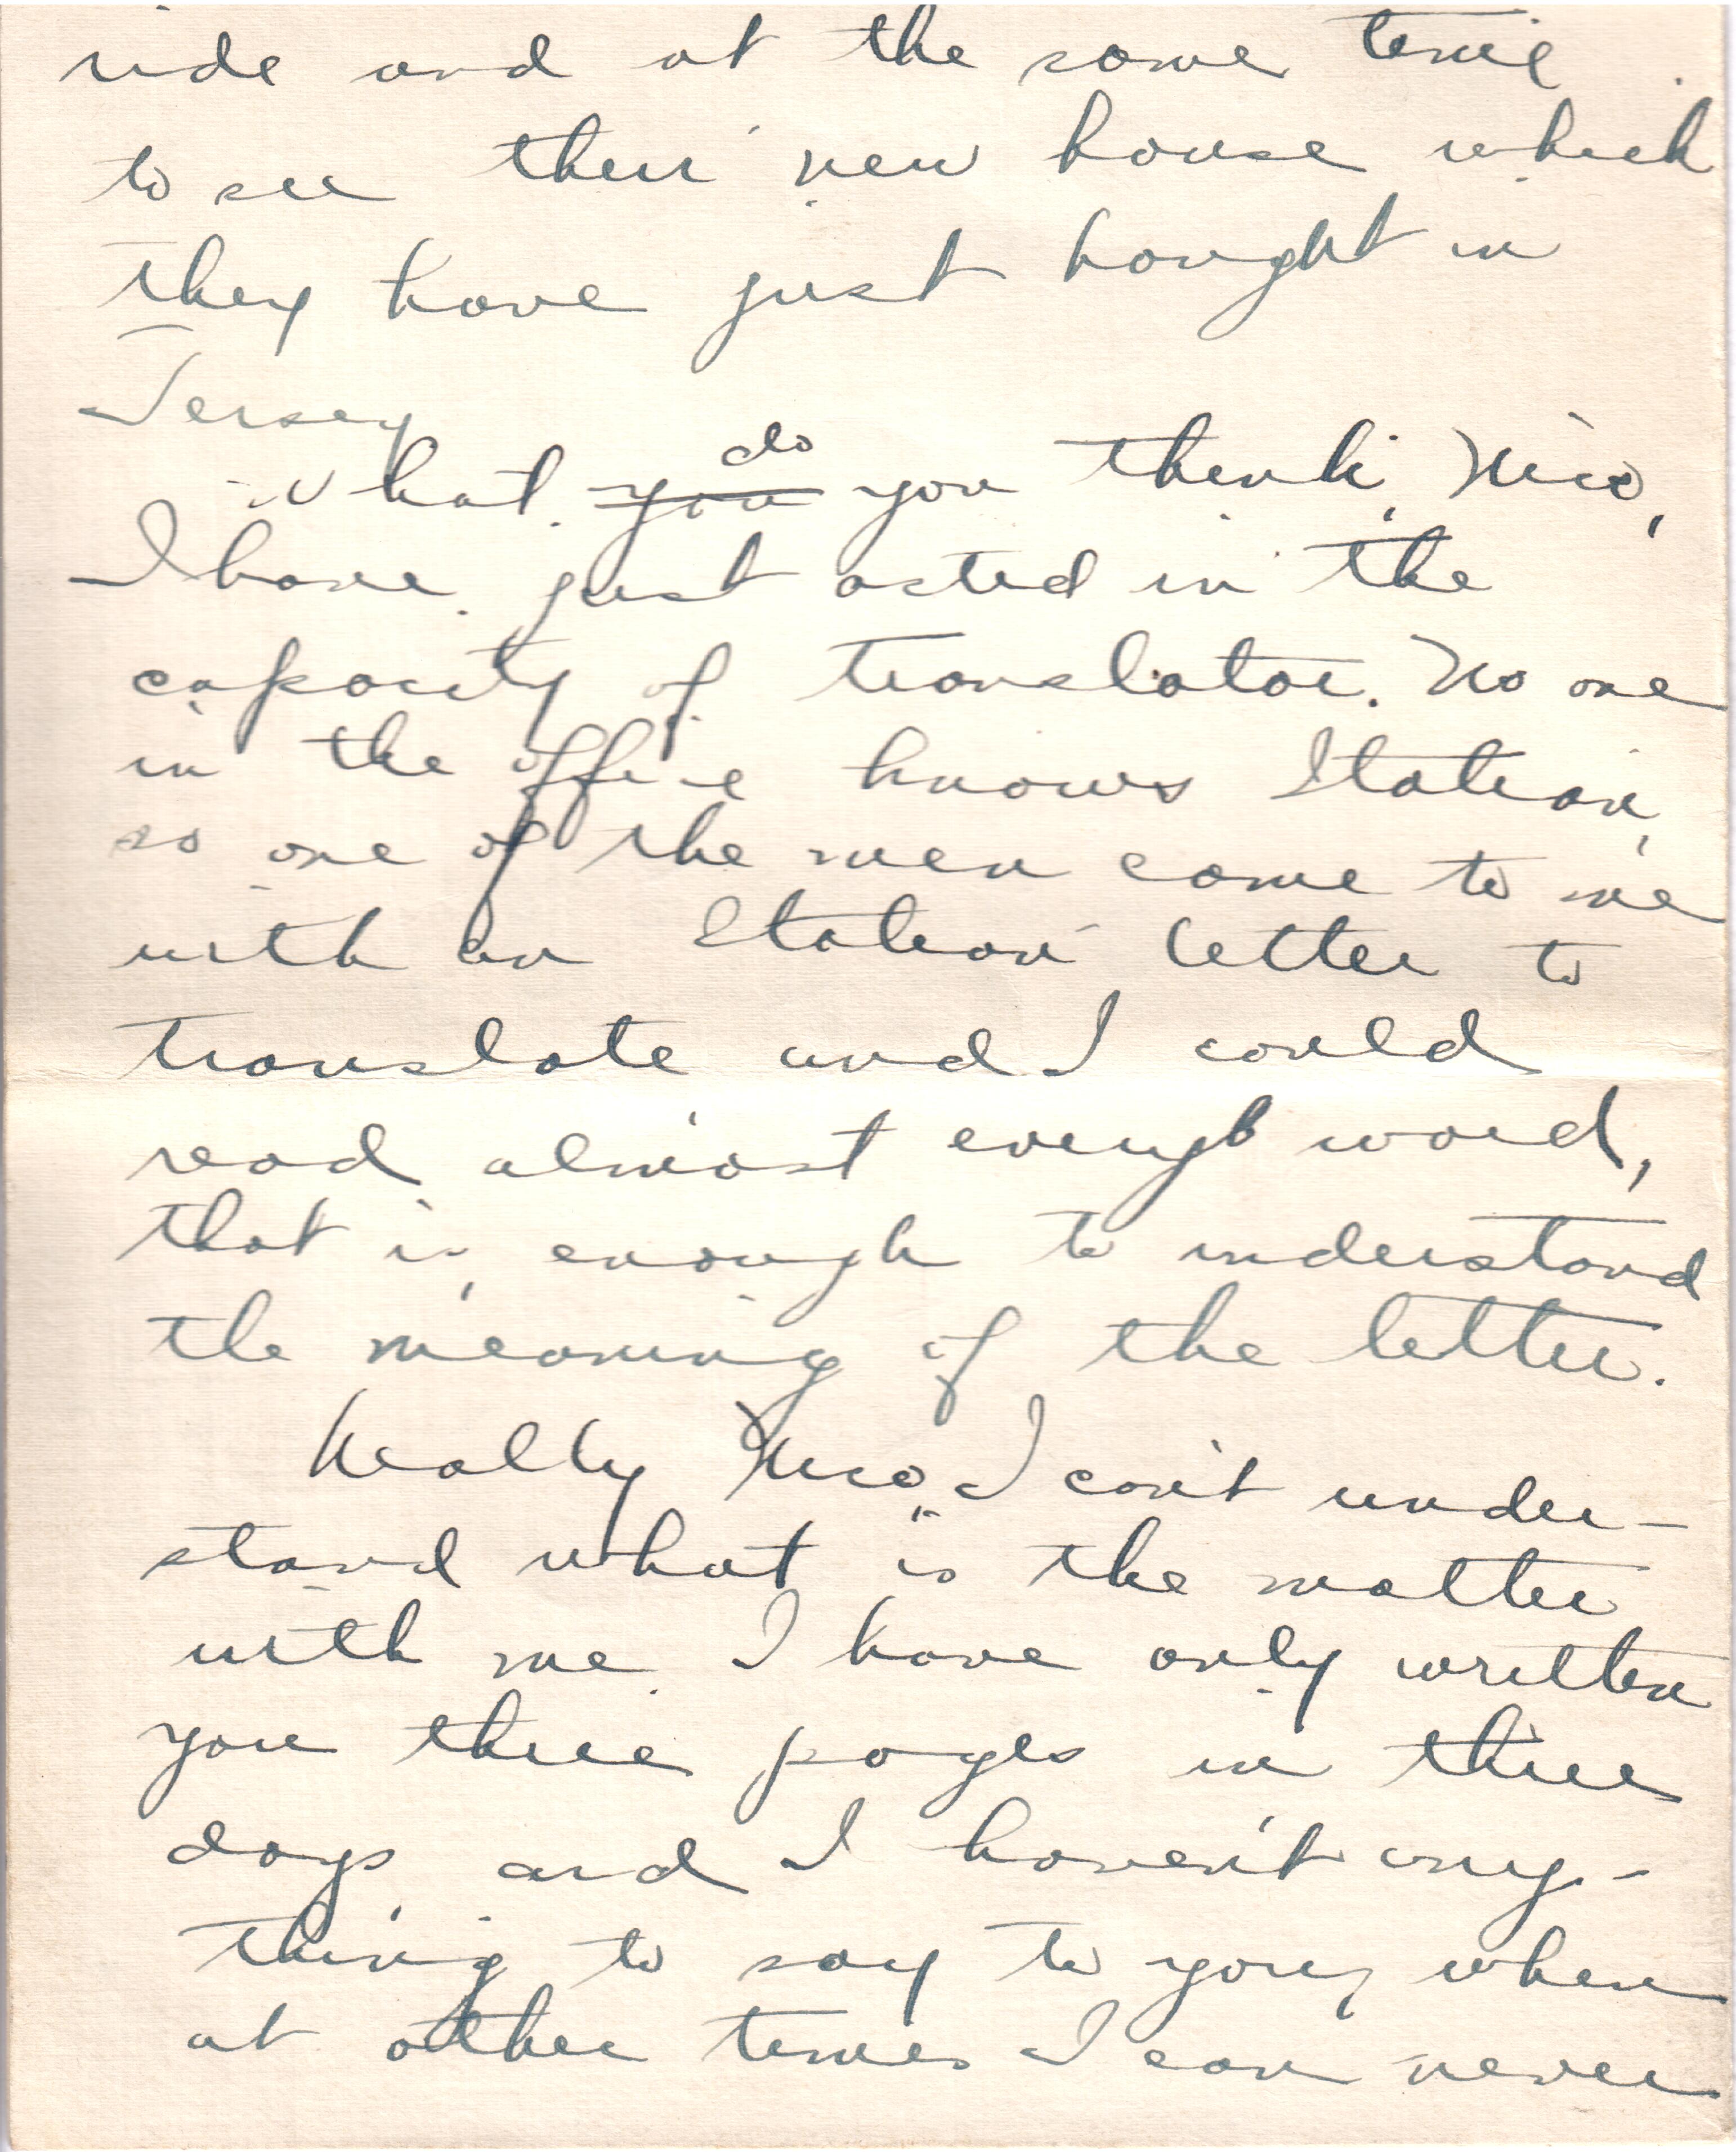 ride and at the same time
to see their new house which
they have just bought in
Jersey
What you do you think, Nico,
I have just acted in the
capacity of translator. No one
in the office knows Italian,
so one of the men came to me
with an Italian letter to
translate and I could
read almost every word,
that is, enough to understand
the meaning of the letter.
Really Nico, I can't under-
stand what is the matter
with me. I have only written
you three pages in three
days, and I haven't any-
thing to say to you, when
at other times I can never